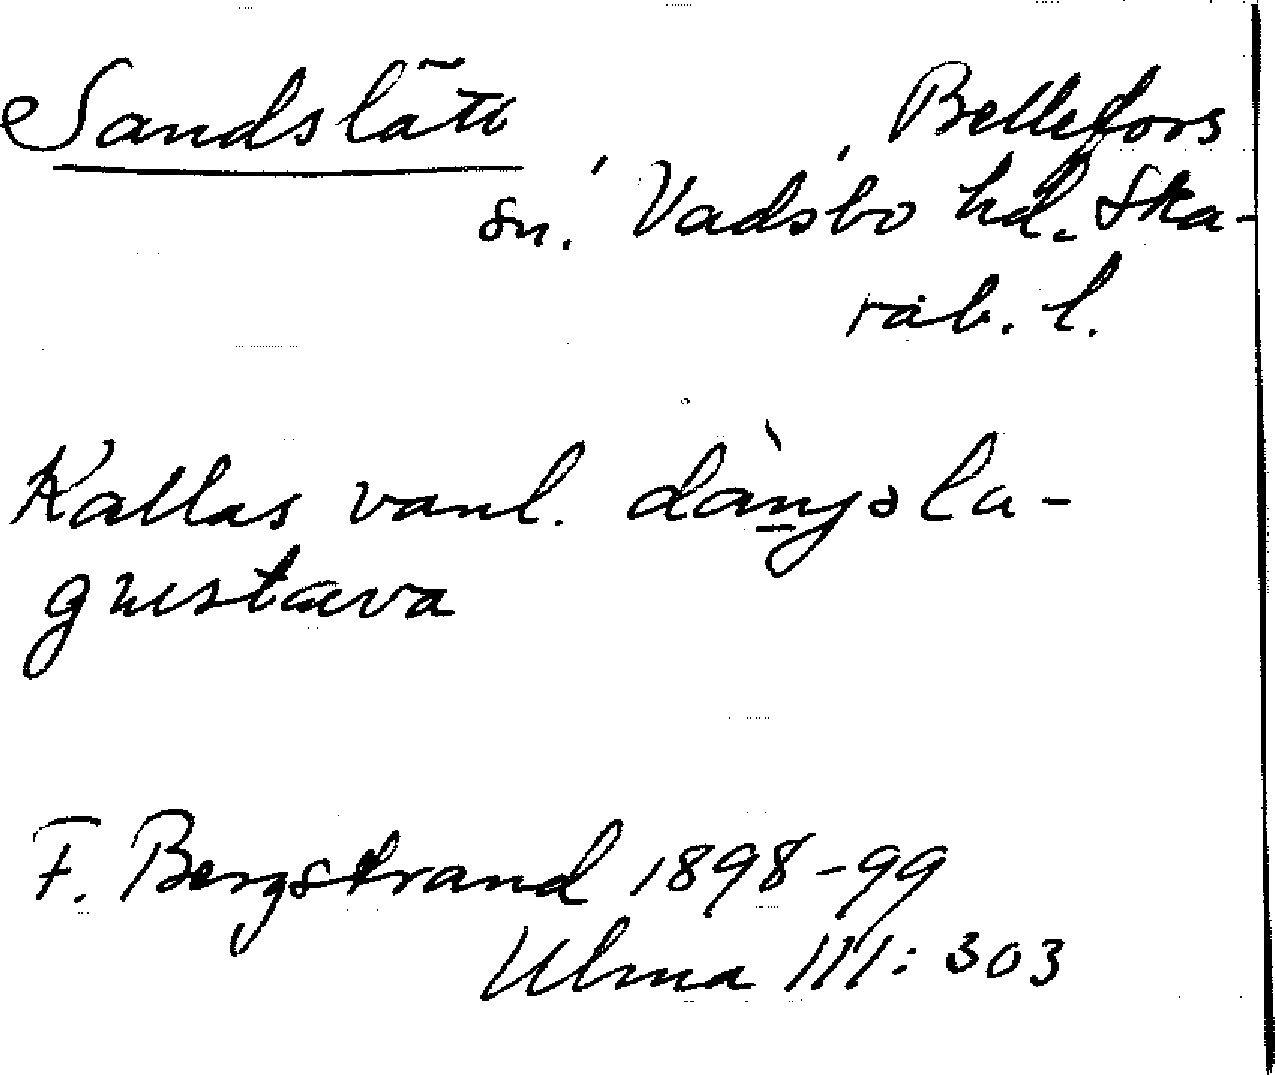 Sandslätt, Bellefors
sn. Vadsbo hd. Ska-
rab. l.
Kallas vanl.
F. Bergstrand 1898-99
Ulma 111: 303